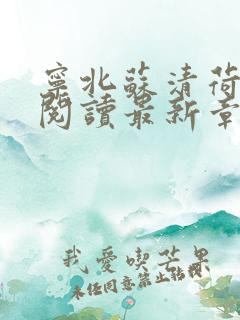 寧北蘇清荷
閱讀最新章
我愛喫芒果
未經同意禁止轉載